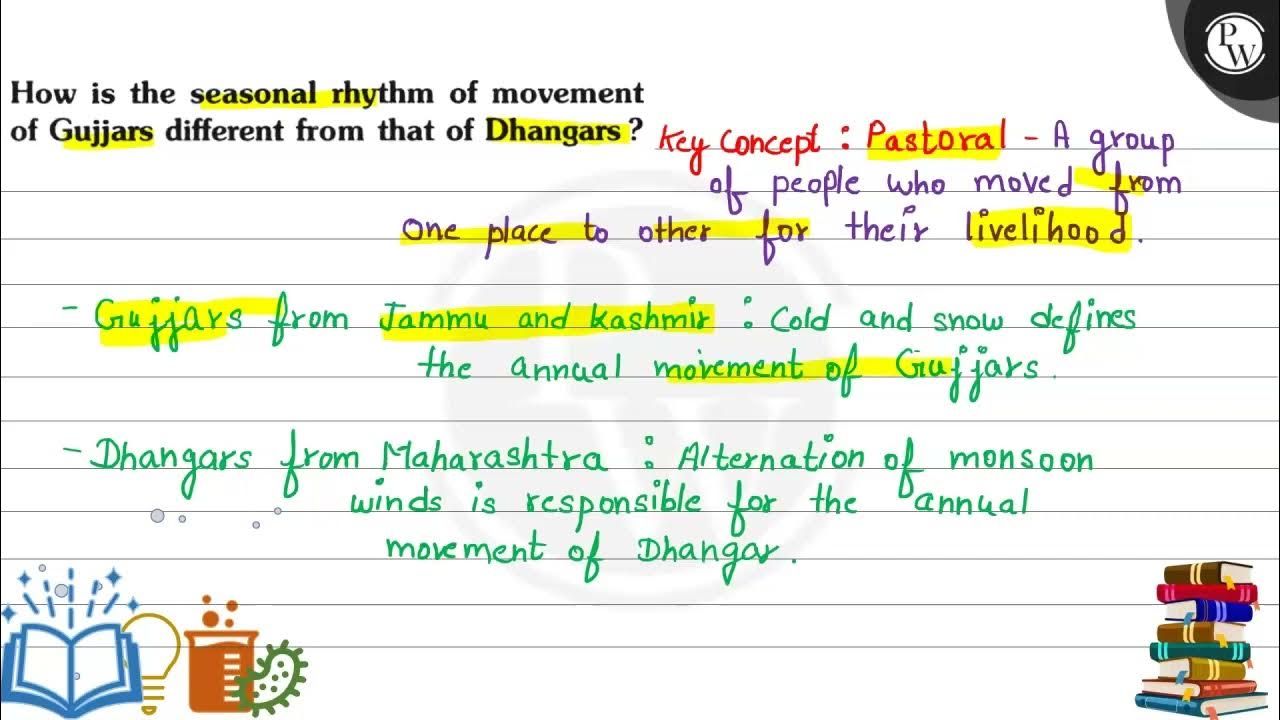 PW
How is the seasonal rhythm of movement
of Gujjars different from that of Dhangars ?
Key Concept : Pastoral - A group
of people who moved from
one place to other for their livelihood.
- Gujjars from Jammu and kashmir : Cold and snow defines
the annual movement of Gujjars.
- Dhangars from Maharashtra : Alternation of monsoon
winds is responsible for the annual
movement of Dhangar.